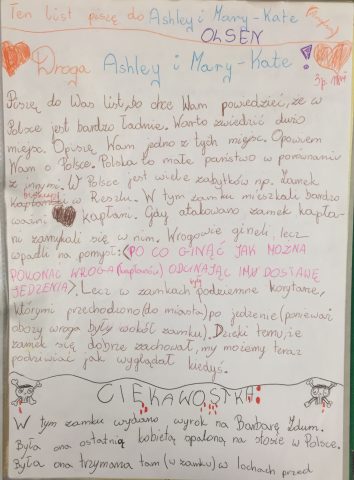 Ten list piszę do Ashley i Mary-Kate
OLSEN
Droga Ashley i Mary-Kate!
Piszę do Was list, bo chcę Wam powiedzieć, że w
Polsce jest bardzo ładnie. Warto zwiedzić dużo
miejsc. Opiszę Wam jedno z tych miejsc. Opowiem
Wam o Polsce. Polska to małe państwo w porównaniu
z innymi. W Polsce jest wiele zabytków np. Zamek
Reszlu. W tym zamku mieszkali bardzo
ważni kapłani. Gdy atakowano zamek kapła-
ni zamykali się w nim. Wrogowie ginęli, lecz
wpadli na pomysł: (PO CO GINĄĆ JAK MOŻNA
POKONAĆ WROGA (kapłanów) ODCINAJĄC IMU DOSTAWĘ
JEDZENIA). Lecz w zamkach były podziemne korytarze,
którymi przechodzono (do miasta) po jedzenie (ponieważ
obozy wroga były wokół zamku). Dzięki temu, że
zamek się dobrze zachował, my możemy teraz
podziwiać jak wyglądał kiedyś.
CIEKAWOSTKA:
W tym zamku wydano wyrok na Barbarę Zdunk.
Była ona ostatnią kobietą spaloną na stosie w Polsce.
Była ona trzymana tam (w zamku) w lochach przed